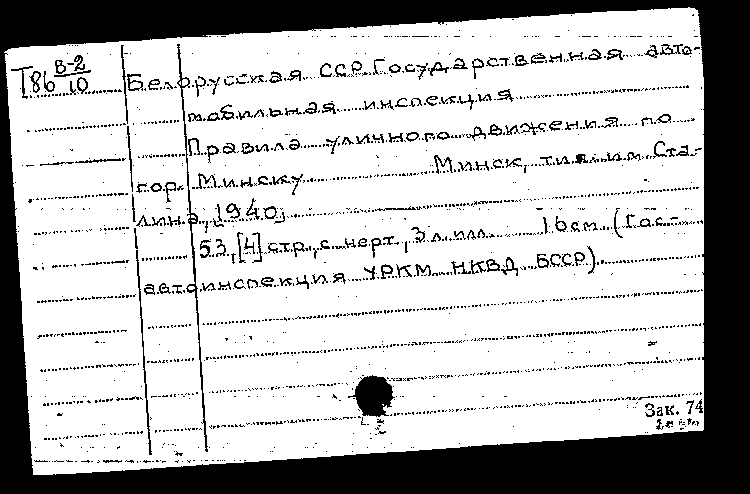 Т86 В-2/10
Белорусская ССР. Государственная авто-
мобильная инспекция
Правила уличного движения по
гор. Минску Минск, тип. им. Ста-
лина, 1940.
53, [4] стр., с черт., 3 л. илл. 16 см (Гос-
автоинспекция УРКМ НКВД БССР).
Зак. 74